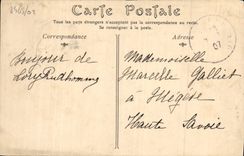 Carte Postale
Tous les pays étrangers n'acceptent pas la correspondance au recto.
Se renseigner à la poste.
Correspondance
Adresse
Bonjour de
Mademoiselle
Marcelle Galliet
à Megève
Haute Savoie
07